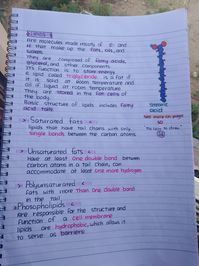 Lipids
are molecules made mostly of C and
H that make up the fats, oils, and
waxes.
They are composed of famy acids,
glycerol, and other components.
Its function is to store energy.
A lipid called triglyceride is a fat if
it is solid at room temperature and
oil if liquid at room temperature.
They are stored in the fan cells of
the body.
Basic structure of lipids includes famy
acid tails.
Stearic
acid
Saturated fats
lipids that have tail chains with only
single bonds between the carbon atoms.
Too easy to draw
Unsaturated fats
Have at least one double bond between
carbon atoms in a tail chain, can
accommodate at least one more hydrogen.
Polyunsaturated
Fats with more than one double bond
in the tail.
Phosopholipids
are responsible for the structure and
function of a cell membrane
lipids are hydrophobic, which allows it
to serve as barriers.